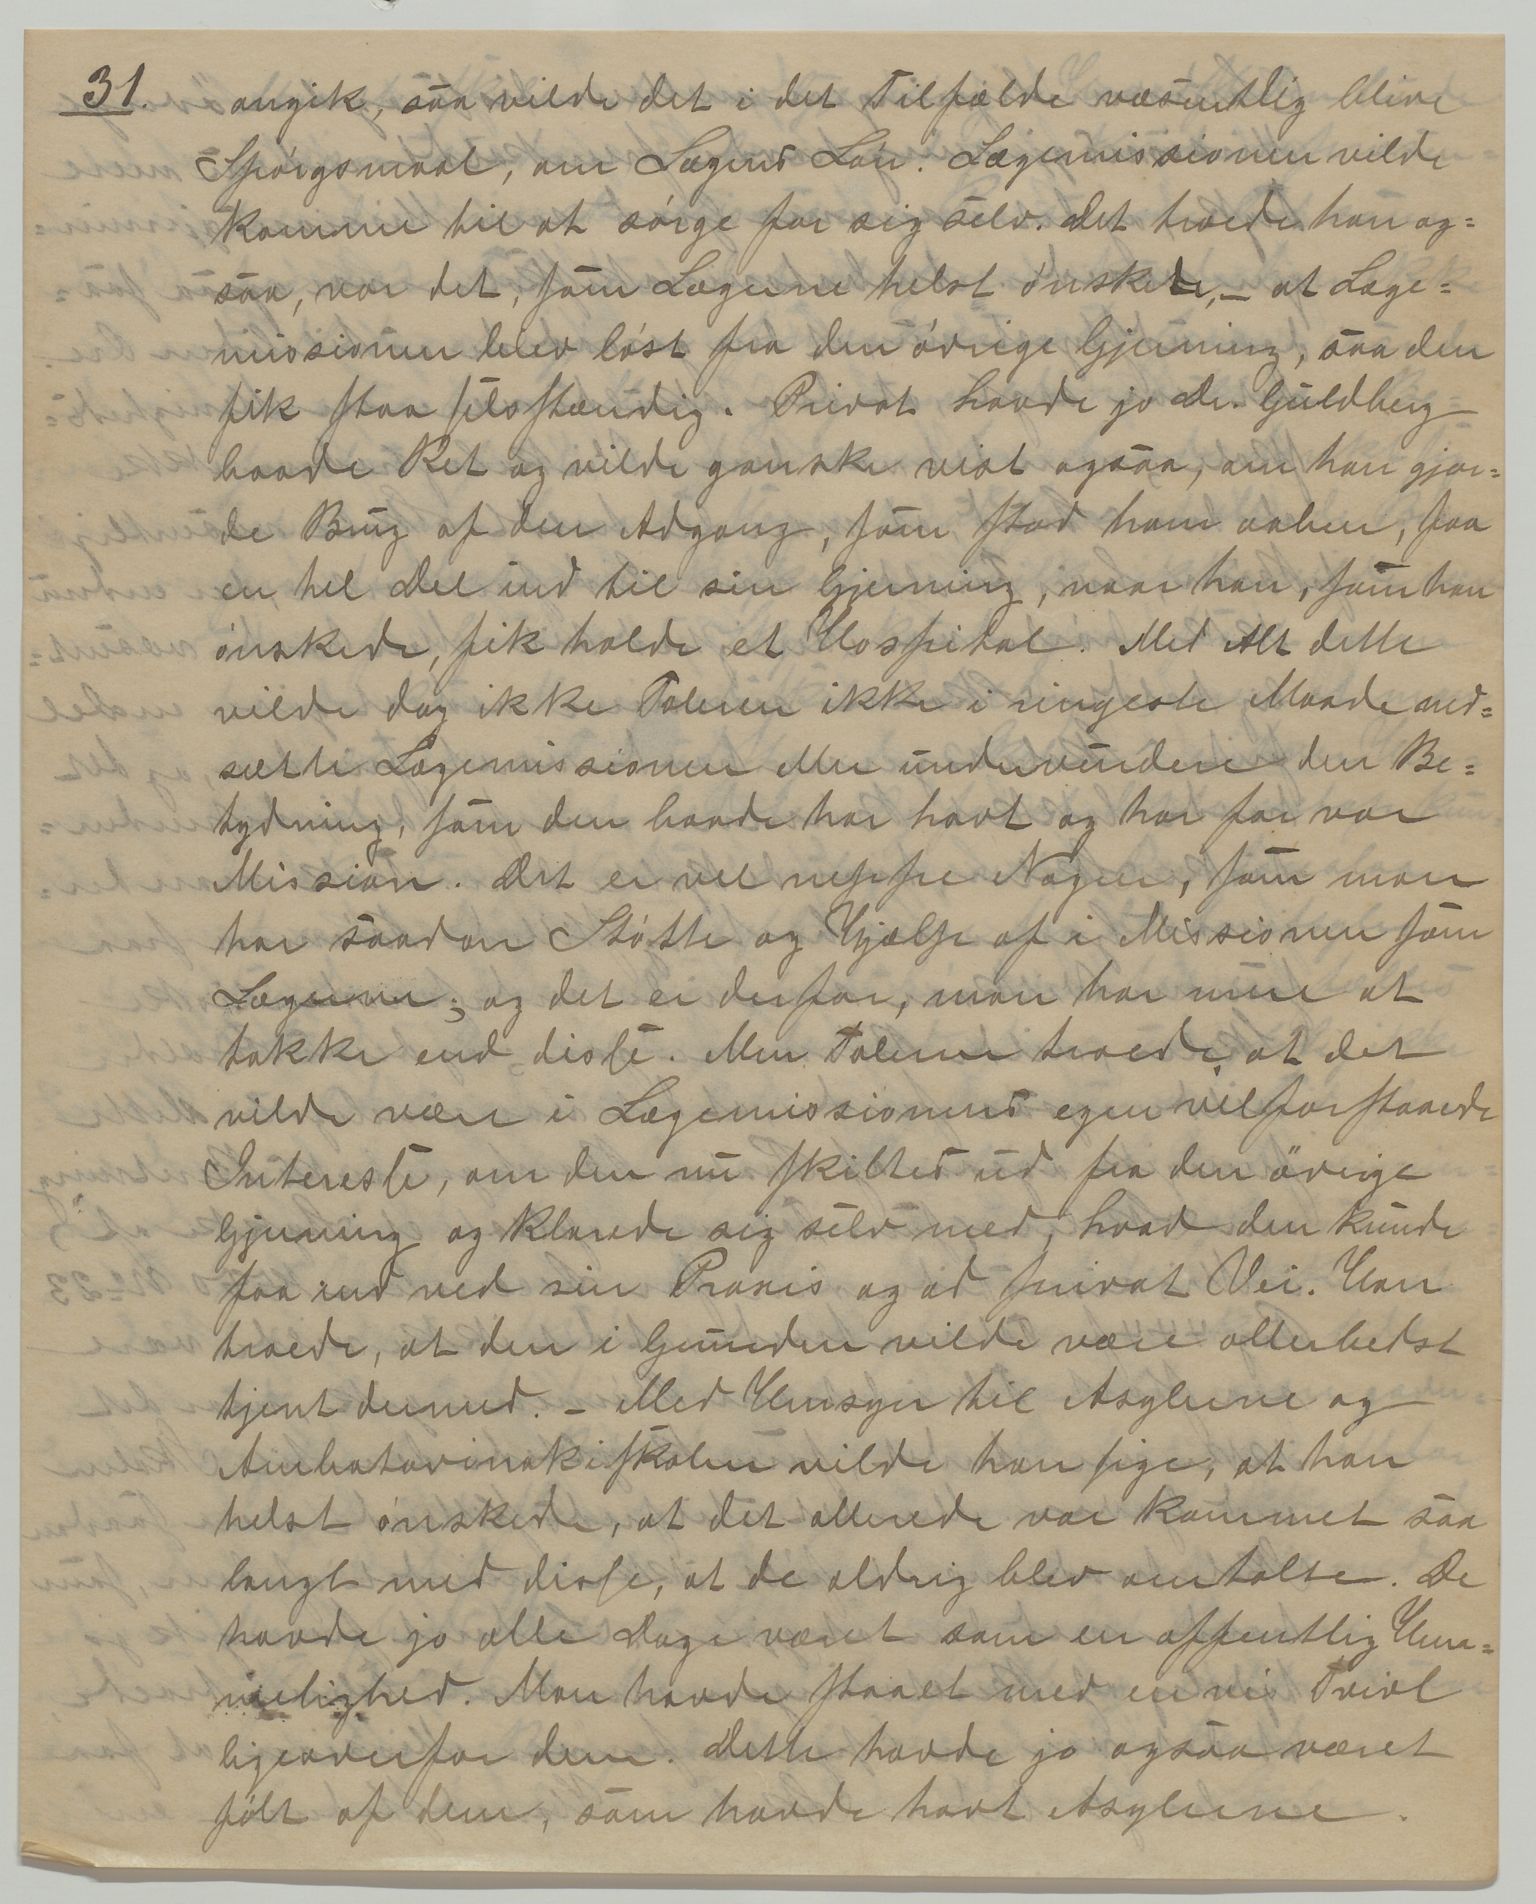 31. angik, saa vilde det i det Tilfælde væsentlig blive
Spørgsmaal, om Lægens Løn. Lægemissionen vilde
komme til at sørge for sig selv. Det troede han og=
saa, var det, som Lægerne helst ønskede, – at Læge=
missionen blev løst fra den øvrige Gjerning, saa den
fik staa selvstændig. Privat havde jo Dr. Guldberg
baade Ret og vilde ganske vist ogsaa, om han gjor=
de Brug af den Adgang, som stod ham aaben, faa
en hel Del ind til sin Gjerning, naar han, som han
ønskede, fik holde et Hospital. Med Alt dette
vilde dog ikke Taleren ikke i ringeste Maade ned=
sætte Lægemissionen eller undervurdere den Be=
tydning, som den baade har havt og har for vor
Mission. Det er vel neppe Nogen, som man
har saadan Støtte og Hjælp af i Missionen som
Lægerne; og det er derfor, man har mere at
takke end disse. Men Taleren troede, at det
vilde være i Lægemissionens egen velforstaaede
Interesse, om den nu skiltes ud fra den øvrige
Gjerning og klarede sig selv med, hvad den kunde
faa ind ved sin Praxis og ad privat Vei. Han
troede, at den i Grunden vilde være allerbedst
tjent dermed. – Med Hensyn til Asylerne og
Ambatovinakiskolen vilde han sige, at han
helst ønskede, at det allerede var kommet saa
langt med disse, at de aldrig blev omtalte. De
havde jo alle Dage været som en offentlig Hem=
melighed. Man havde staaet med en vis Tvivl
ligeoverfor dem. Dette havde jo ogsaa været
følt af dem, som havde havt Asylerne.